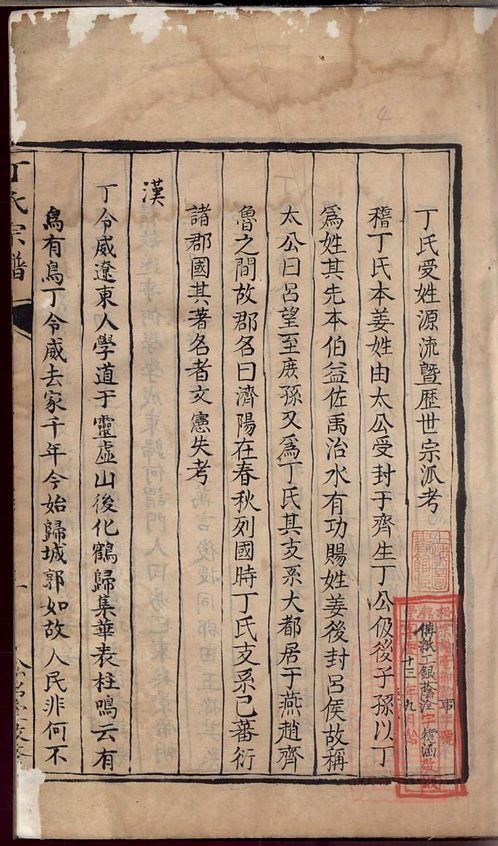 丁氏受姓源流暨歷世宗派考
稽丁氏本姜姓由太公受封于齊生丁公伋後子孫以丁
爲姓其先本伯益佐禹治水有功賜姓姜後封呂侯故稱
太公曰呂望至庶孫又爲丁氏其支系大都居于燕趙齊
魯之間故郡名曰濟陽在春秋列國時丁氏支系已蕃衍
諸郡國其著名者文憲失考
漢
丁令威遼東人學道于靈虛山後化鶴歸集華表柱鳴云有
鳥有鳥丁令威去家千年今始歸城郭如故人民非何不
丁氏宗譜
一
4